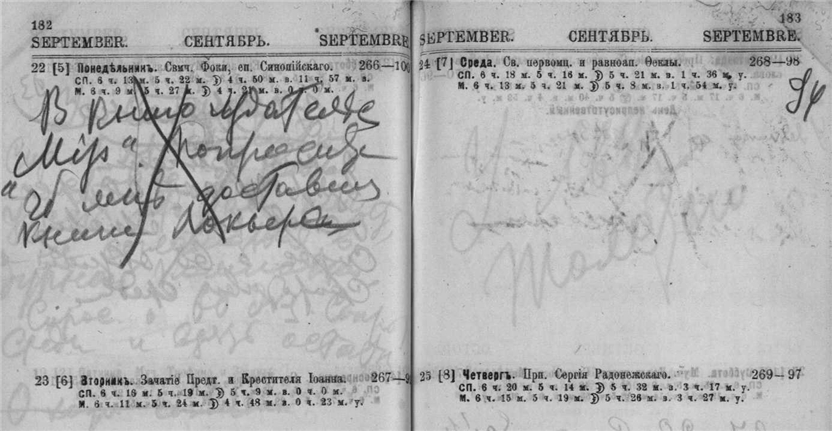 182
SEPTEMBER. СЕНТЯБРЬ. SEPTEMBRE
22 [5] Понедѣльникъ. Свмч. Фоки, еп. Синопійскаго. 266—100
СП. 6 ч. 13 м. 5 ч. 22 м. ☽ 4 ч. 50 м. в. 11 ч. 57 м. в.
М. 6 ч. 9 м. 5 ч. 27 м. ☽ 4 ч. 21 м. 0 ч. 0 м.
В книгоиздательстве
"Мiръ". Попросить
чтоб мнѣ доставили
книги
23 [6] Вторникъ. Зачатіе Предт. и Крестителя Іоанна. 267—9
СП. 6 ч. 16 м. 5 ч. 19 м. ☽ 5 ч. 9 м. в. 0 ч. 0 м.
М. 6 ч. 11 м. 5 ч. 24 м. ☽ 4 ч. 48 м. в. 0 ч. 23 м. у.
183
SEPTEMBER. СЕНТЯБРЬ. SEPTEMBRE.
24 [7] Среда. Св. первомц. и равноап. Ѳеклы. 268—98
СП. 6 ч. 18 м. 5 ч. 16 м. ☽ 5 ч. 21 м. в. 1 ч. 36 м. у.
М. 6 ч. 13 м. 5 ч. 21 м. ☽ 5 ч. 8 м. в. 1 ч. 54 м. у.
94
25 [8] Четвергъ. Прп. Сергія Радонежскаго. 269—97
СП. 6 ч. 20 м. 5 ч. 14 м. ☽ 5 ч. 32 м. в. 3 ч. 17 м. у.
М. 6 ч. 15 м. 5 ч. 19 м. ☽ 5 ч. 26 м. в. 3 ч. 27 м. у.